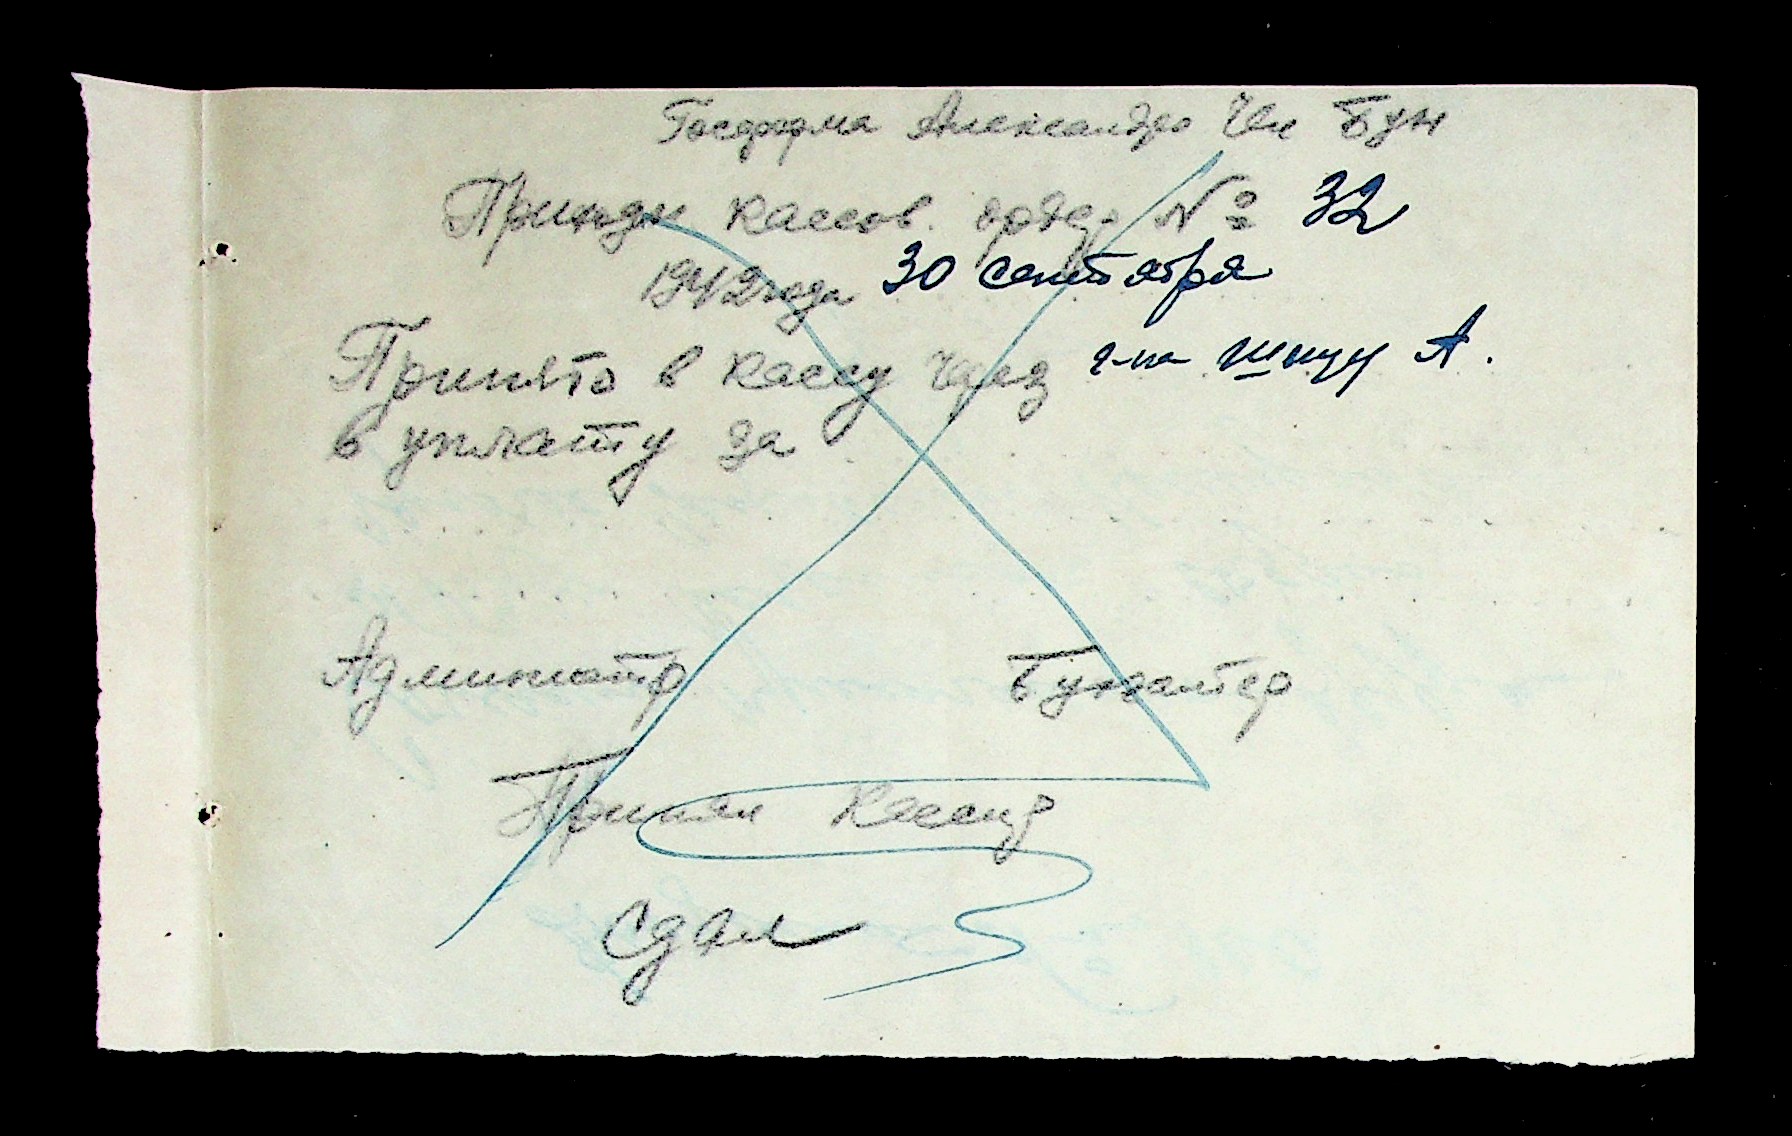 Госферма Александро Чех Бун
Приходн кассов. ордер № 32
1942 года 30 сентября
Принято в кассу через г-на Шпур А.
в уплату за
Администр Бухгалтер
Принял Кассир
Сдал